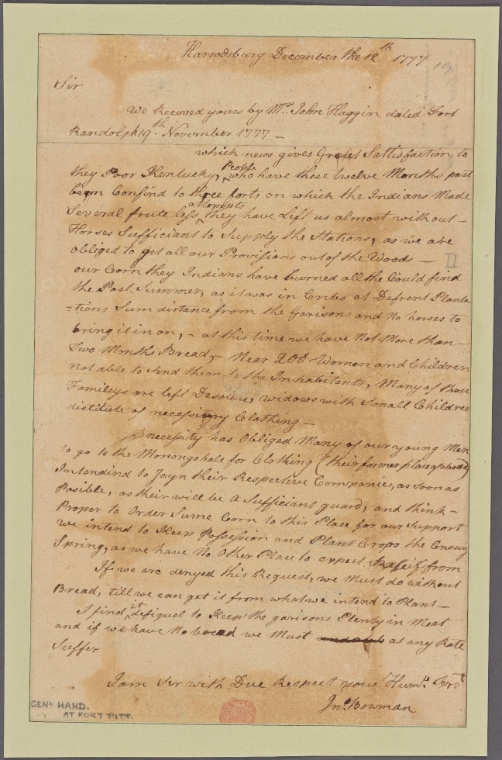 Harrodsburg December the 12th 1777
Sir
We Receved yours by Mr. John Haggin dated Fort
Randolph 19th November 1777 —
which news gives Great Sattisfaction to
they Poor Kentucky People who have these twelve Months past
been Confind to three forts, on which the Indians Made
Several frutelefs attempts they have Left us almost without —
Horses Sufficient to Supply the Stations, as we are
obliged to get all our Provisions out of the Woods —
our Corn they Indians have burned all the Could find
the Past Summer, as it was in Cribs at Defrent Planta
=tions Sum distance from the Garisons and no horses to
bring it in on, — at this time we have not More than
two Months Bread, — Near 200 Women and Children
not able to Send them to the Inhabitents, Many of those
Famileys are left Desolate, widows with Small Children
distitute of necessary Clothing —
necessity has Obliged Many of our young Men
to go to the Monongahale for Clothing (their former place of
Intending to Joyn their Respective Companie, as soon as
Posible, as their will be a Sufficiant guard, and think —
Proper to Order Sume Corn to this Place for our Support
we intend to Keep Possession and Plant Crops the Ensuing
Spring, as we have no Other Place to expect Releif from
If we are denyed this Request, we Must do without
Bread, till we can get it from what we intend to Plant —
I find it difiquel to Keep the garisons Plenty in Meat
and if we have no bread we Must at any Rate
Suffer
I am Sir with Due Respect your Humb. Serv.t
Jno. Bowman
GENL HAND.
AT FORT PITT.